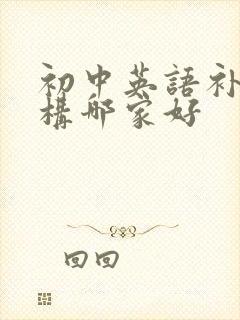 初中英語补
構哪家好
回回